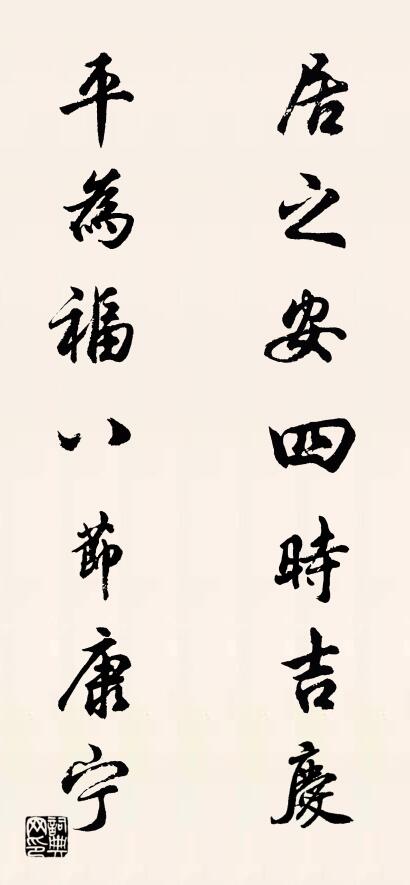 居之安四時吉慶
平為福八節康宁
詞典網印